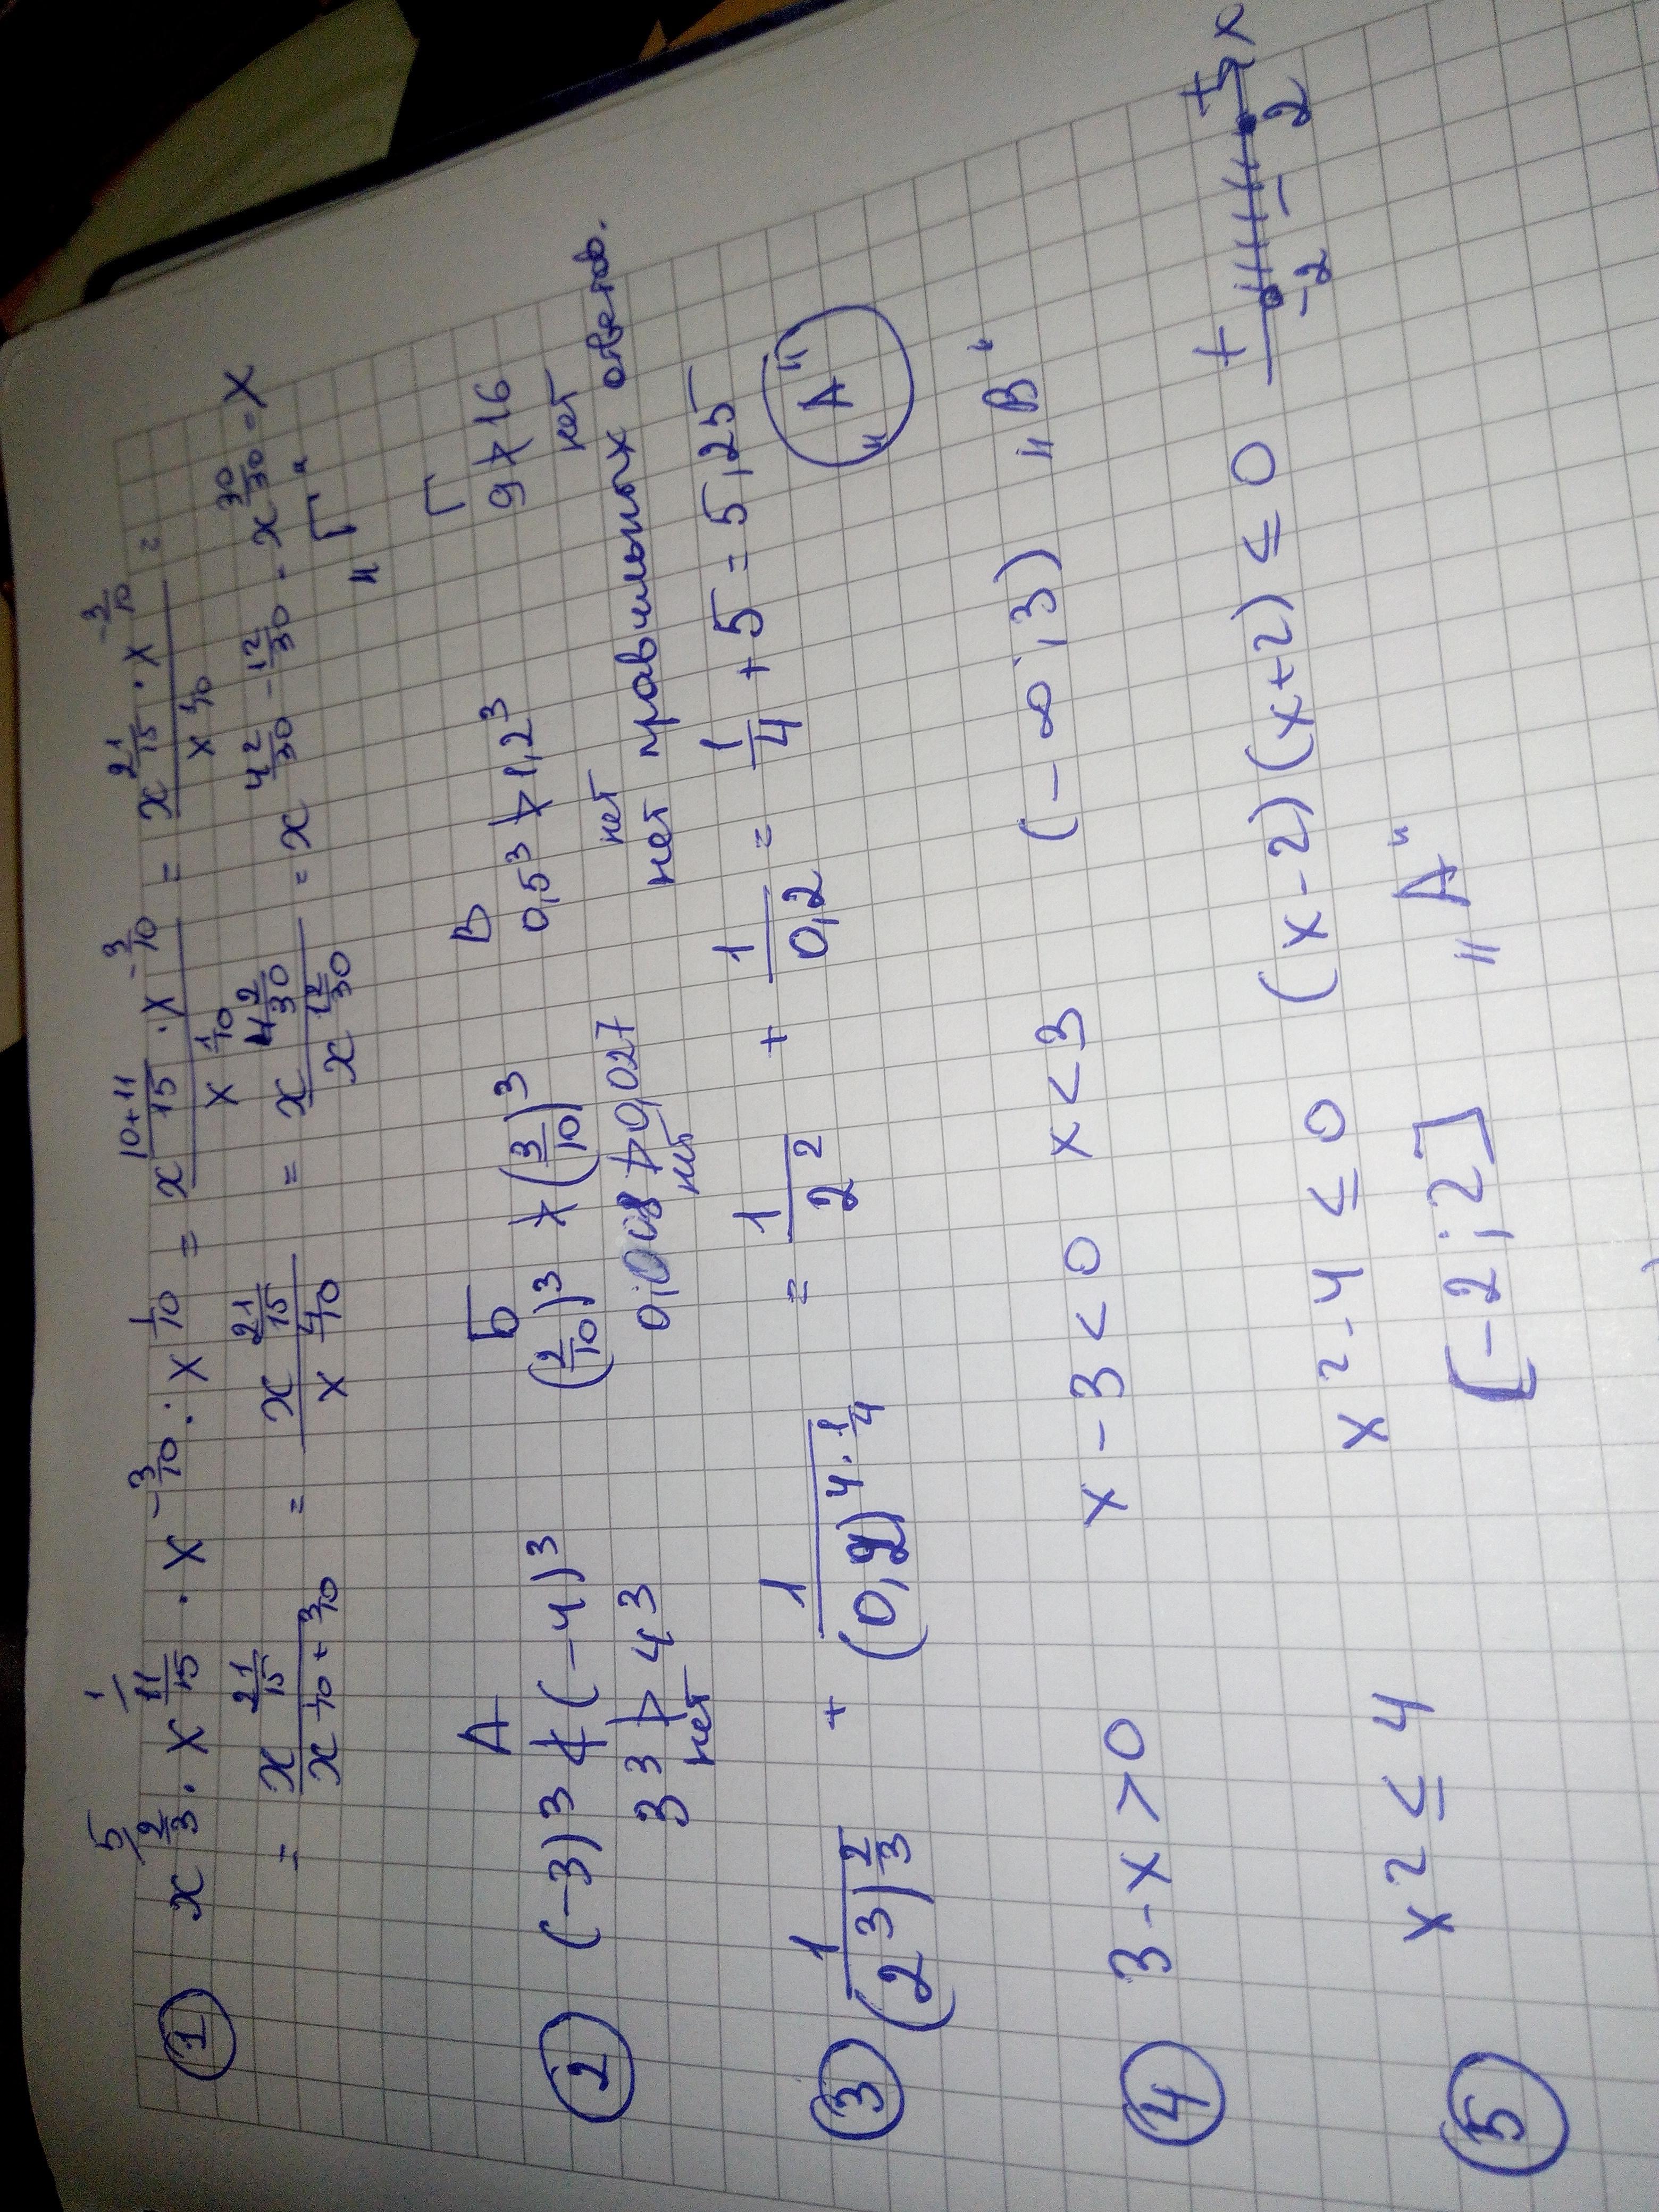 ① x^(2/3) · x^(11/15) · x^(-3/10) : x^(1/10) = (x^((10+11)/15) · x^(-3/10)) / x^(1/10) = (x^(21/15) · x^(-3/10)) / x^(1/10) =
= x^(21/15) / x^(1/10 + 3/10) = x^(21/15) / x^(4/10) = x^(42/30) / x^(12/30) = x^(42/30 - 12/30) = x^(30/30) = x
"Г"
А Б В Г
② (-3)^3 ≮ (-4)^3 (2/10)^3 ≯ (3/10)^3 0,5^3 ≯ 1,2^3 9 ≯ 16
3^3 ≯ 4^3 0,008 ≯ 0,027 нет нет
нет нет нет правильных ответов.
③ 1/(2^3)^(2/3) + 1/(0,2)^(4·1/4) = 1/2^2 + 1/0,2 = 1/4 + 5 = 5,25
"А"
④ 3-x>0 x-3<0 x<3 (-∞;3) "В"
⑤ x^2 ≤ 4 x^2-4 ≤ 0 (x-2)(x+2) ≤ 0 + -2 - 2 + x
[-2;2] "А"